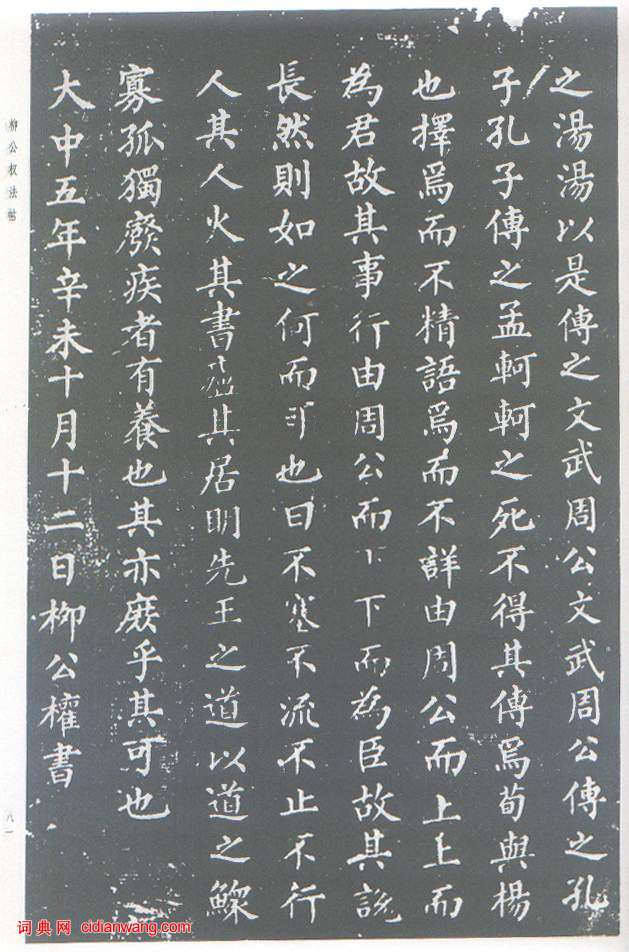 之湯湯以是傳之文武周公文武周公傳之孔
子孔子傳之孟軻軻之死不得其傳焉荀與楊
也擇焉而不精語焉而不詳由周公而上上而
為君故其事行由周公而下下而為臣故其說
長然則如之何而可也曰不塞不流不止不行
人其人火其書廬其居明先王之道以道之鰥
寡孤獨廢疾者有養也其亦庶乎其可也
大中五年辛未十月十二日柳公權書
柳公权法帖
八一
词典网 cidianwang.com